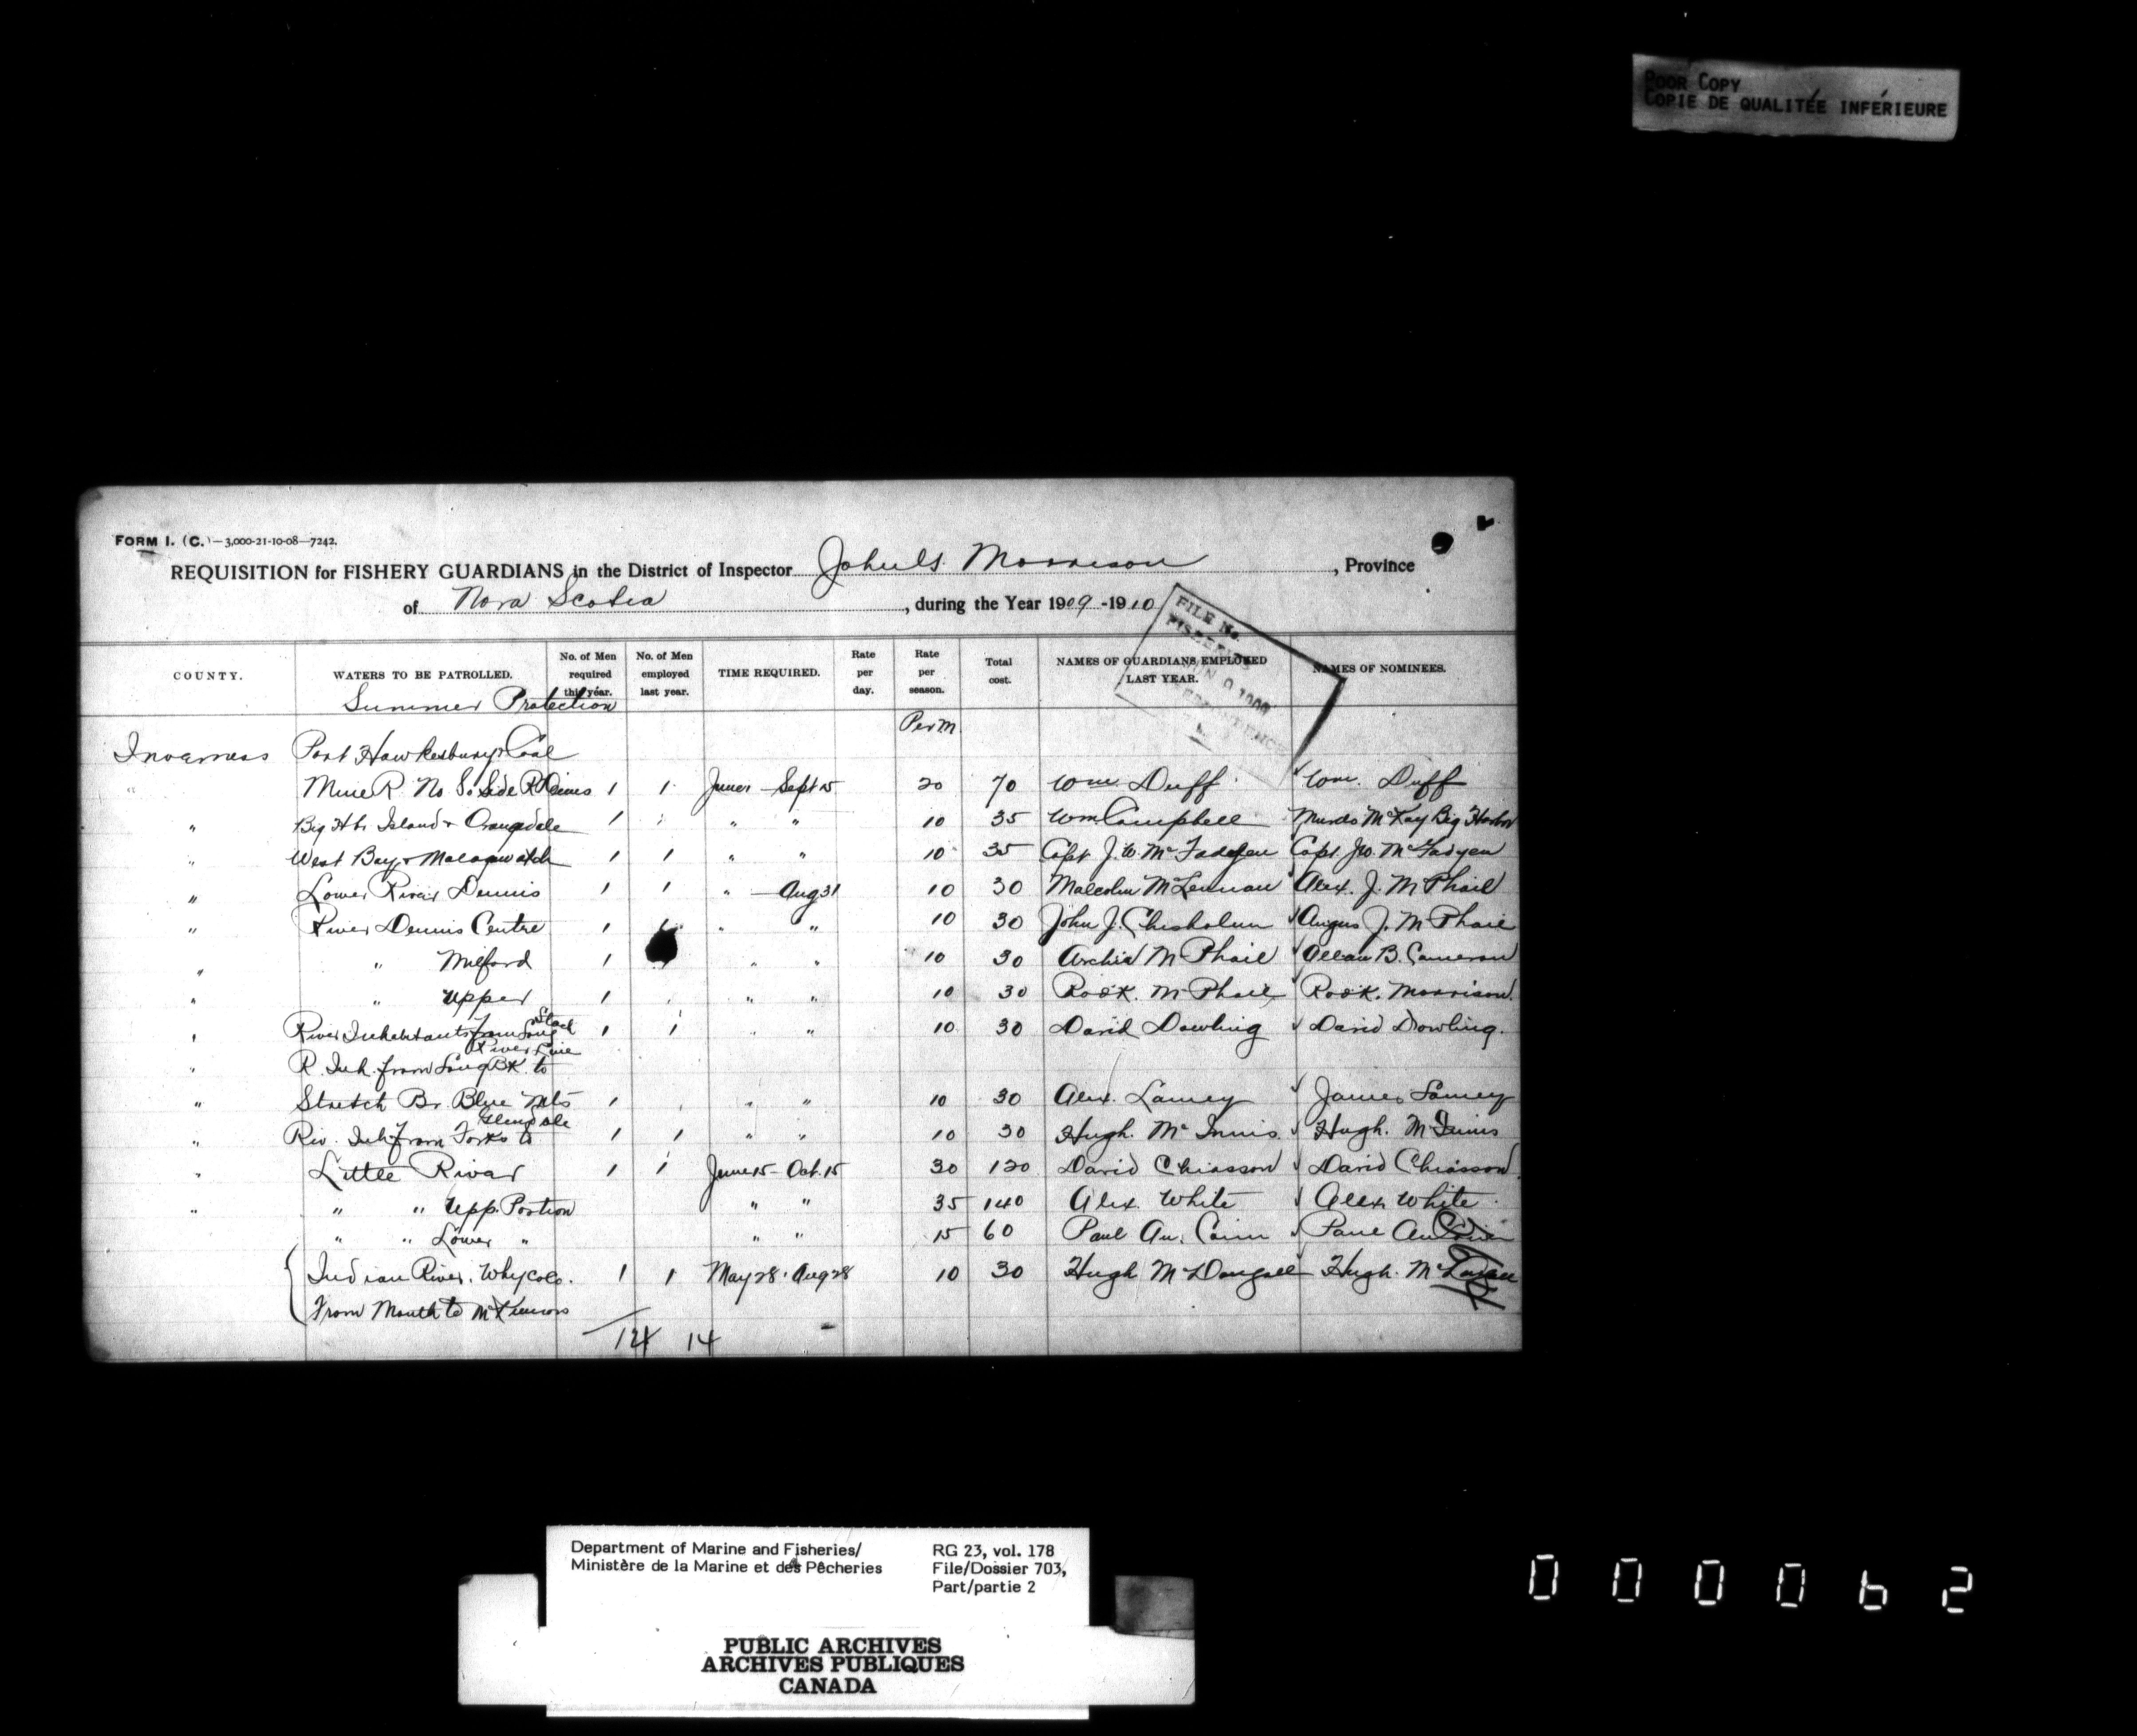 POOR COPY
COPIE DE QUALITÉE INFÉRIEURE
FORM 1. (C.)—3,000-21-10-08—7242.
REQUISITION for FISHERY GUARDIANS in the District of Inspector Morrison, Province
of Nova Scotia, during the Year 1909-1910
FILE No.
FISHERIES
COUNTY. WATERS TO BE PATROLLED. No. of Men required this year. No. of Men employed last year. TIME REQUIRED. Rate per day. Rate per season. Total cost. NAMES OF GUARDIANS EMPLOYED LAST YEAR. NAMES OF NOMINEES.
Summer Protection
Per M.
Inverness Port Hawkesbury & Coal
" Mine R. No. So. Side R Denis 1 1 June 1 - Sept 15 20 70 Wm. Duff Wm. Duff
" Big Hbr Island & Orangedale 1 " " 10 35 Wm Campbell Murdo McKay Big Harbor
" West Bay & Malagawatch 1 1 " " 10 35 Capt. J. W. McFadyen Capt. J W. McFadyen
" Lower River Dennis 1 1 " - Aug 31 10 30 Malcolm McLennan Alex. J. McPhail
" River Dennis Centre 1 1 " " 10 30 John J. Chisholm Angus J. McPhail
" " Milford 1 " " 10 30 Archie McPhail Allan B. Cameron
" " Upper 1 " " 10 30 Rodk. McPhail Rodk. Morrison
" River Inhabitants from Long 1 1 " " 10 30 David Dowling David Dowling.
River Line
" R. Inh. from Long Bk. to
" Stretch Br. Blue Mts 1 " " 10 30 Alex. Lamey James Lamey
Glendale
" Riv. Inh. from Forks to 1 1 " " 10 30 Hugh. McInnis Hugh. McInnis
" Little River 1 1 June 15 - Oct. 15 30 120 David Chiasson David Chiasson
" " " Upp. Portion " " 35 140 Alex. White Alex White
" " Lower " " " 15 60 Paul Au. Paul Au
Indian River. Whycoco. 1 1 May 28 - Aug 28 10 30 Hugh McDougall Hugh.
From Mouth to McKinnons
14 14
Department of Marine and Fisheries/
Ministère de la Marine et des Pêcheries
RG 23, vol. 178
File/Dossier 703,
Part/partie 2
PUBLIC ARCHIVES
ARCHIVES PUBLIQUES
CANADA
000062